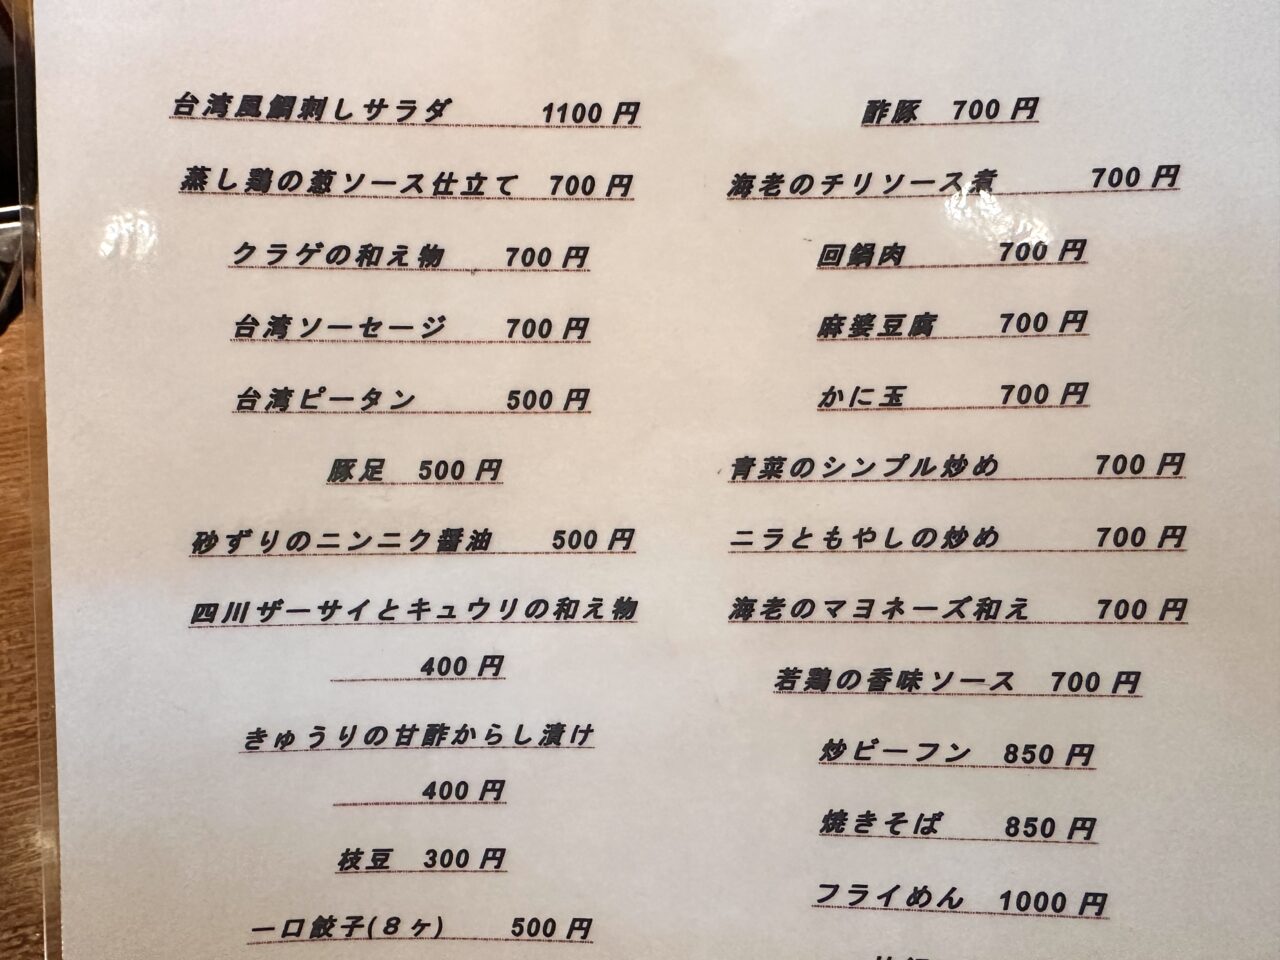 台湾風鯛刺しサラダ 1100円
蒸し鶏の葱ソース仕立て 700円
クラゲの和え物 700円
台湾ソーセージ 700円
台湾ピータン 500円
豚足 500円
砂ずりのニンニク醤油 500円
四川ザーサイとキュウリの和え物
400円
きゅうりの甘酢からし漬け
400円
枝豆 300円
一口餃子(８ヶ) 500円
酢豚 700円
海老のチリソース煮 700円
回鍋肉 700円
麻婆豆腐 700円
かに玉 700円
青菜のシンプル炒め 700円
ニラともやしの炒め 700円
海老のマヨネーズ和え 700円
若鶏の香味ソース 700円
炒ビーフン 850円
焼きそば 850円
フライめん 1000円